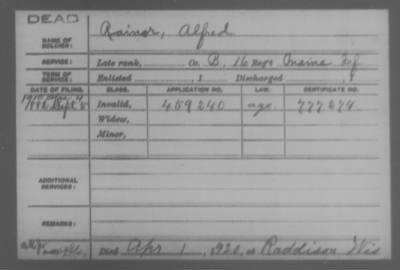 DEAD
NAME OF SOLDIER: Rainor, Alfred
SERVICE: Late rank, Co. B, 16 Reg't Maine Inf
TERM OF SERVICE: Enlisted , 1 Discharged , 1
DATE OF FILING. CLASS. APPLICATION NO. LAW. CERTIFICATE NO.
1892 Sept 5 Invalid, 459240 age. 777274.
Widow,
Minor,
ADDITIONAL SERVICES:
REMARKS:
Died Apr 1, 1920, at Raddison Wis